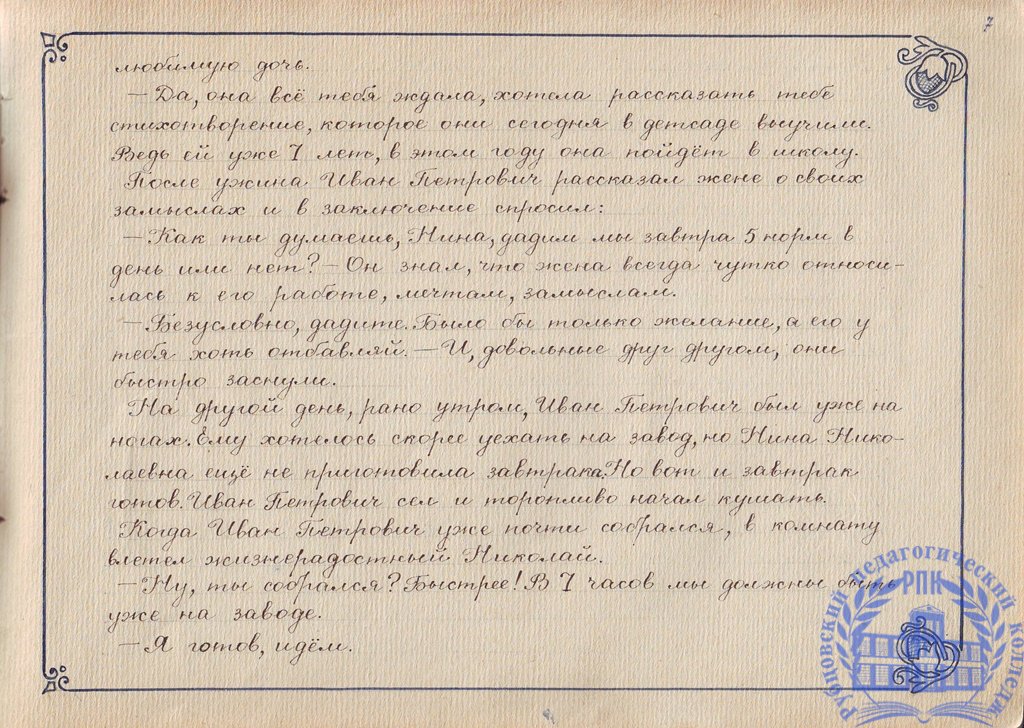 7
любимую дочь.
— Да, она всё тебя ждала, хотела рассказать тебе
стихотворение, которое они сегодня в детсаде выучили.
Ведь ей уже 7 лет, в этом году она пойдёт в школу.
После ужина Иван Петрович рассказал жене о своих
замыслах и в заключение спросил:
— Как ты думаешь, Нина, дадим мы завтра 5 норм в
день или нет? — Он знал, что жена всегда чутко относи-
лась к его работе, мечтам, замыслам.
— Безусловно, дадите. Было бы только желание, а его у
тебя хоть отбавляй. — И, довольные друг другом, они
быстро заснули.
На другой день, рано утром, Иван Петрович был уже на
ногах. Ему хотелось скорее уехать на завод, но Нина Нико-
лаевна ещё не приготовила завтрака. Но вот и завтрак
готов. Иван Петрович сел и торопливо начал кушать.
Когда Иван Петрович уже почти собрался, в комнату
влетел жизнерадостный Николай.
— Ну, ты собрался? Быстрее! В 7 часов мы должны быть
уже на заводе.
— Я готов, идём.
Рубцовский педагогический колледж
РПК